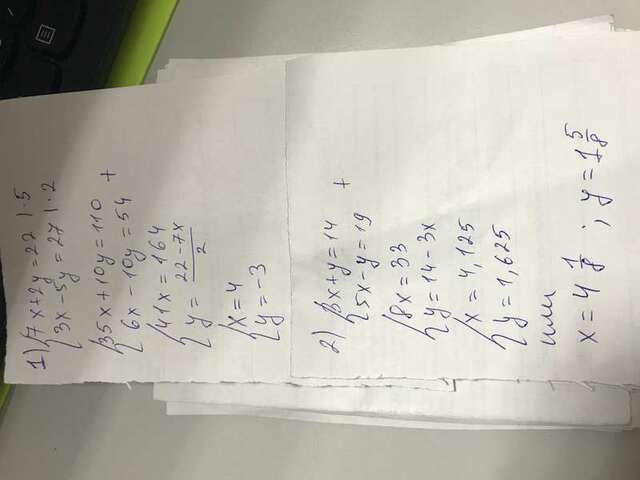 1) { 7x+2y=22 | · 5
{ 3x-5y=27 | · 2
{ 35x+10y=110 +
{ 6x-10y=54
{ 41x=164
{ y= (22-7x)/2
{ x=4
{ y=-3
2) { 3x+y=14 +
{ 5x-y=19
{ 8x=33
{ y=14-3x
{ x=4,125
{ y=1,625
или
x=4 1/8 ; y=1 5/8